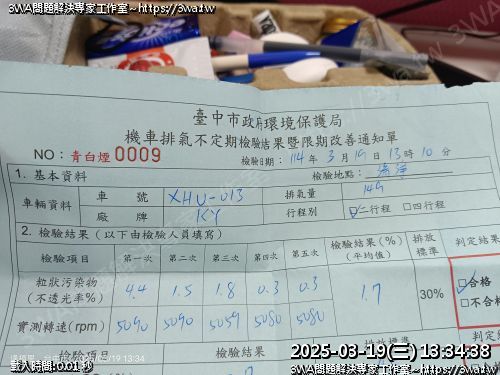 3WA問題解決專家工作室~https://3wa.tw
3WA問題解決專家工作室~https://3wa.tw
臺中市政府環境保護局
機車排氣不定期檢驗結果暨限期改善通知單
NO：青白煙0009
檢驗日期：114年3月19日13時10分
檢驗地點：
1. 基本資料
車輛資料
車號 XHU-013
排氣量 149
廠牌 KY
行程別 ☑二行程 □四行程
2. 檢驗結果（以下由檢驗人員填寫）
檢驗項目 第一次 第二次 第三次 第四次 第五次 檢驗結果(%)(平均值) 排放標準 判定結果
粒狀污染物(不透光率%) 4.4 1.5 1.8 0.3 0.3 1.7 30% ☑合格
□不合格
實測轉速(rpm) 5090 5090 5059 5080 5080
檢驗項目 檢驗結果 排放標準 判定
2025-03-19(三) 13:34:38
載入時間:0.01 秒
3WA問題解決專家工作室~https://3wa.tw
3WA問題解決專家工作室~https://3wa.tw